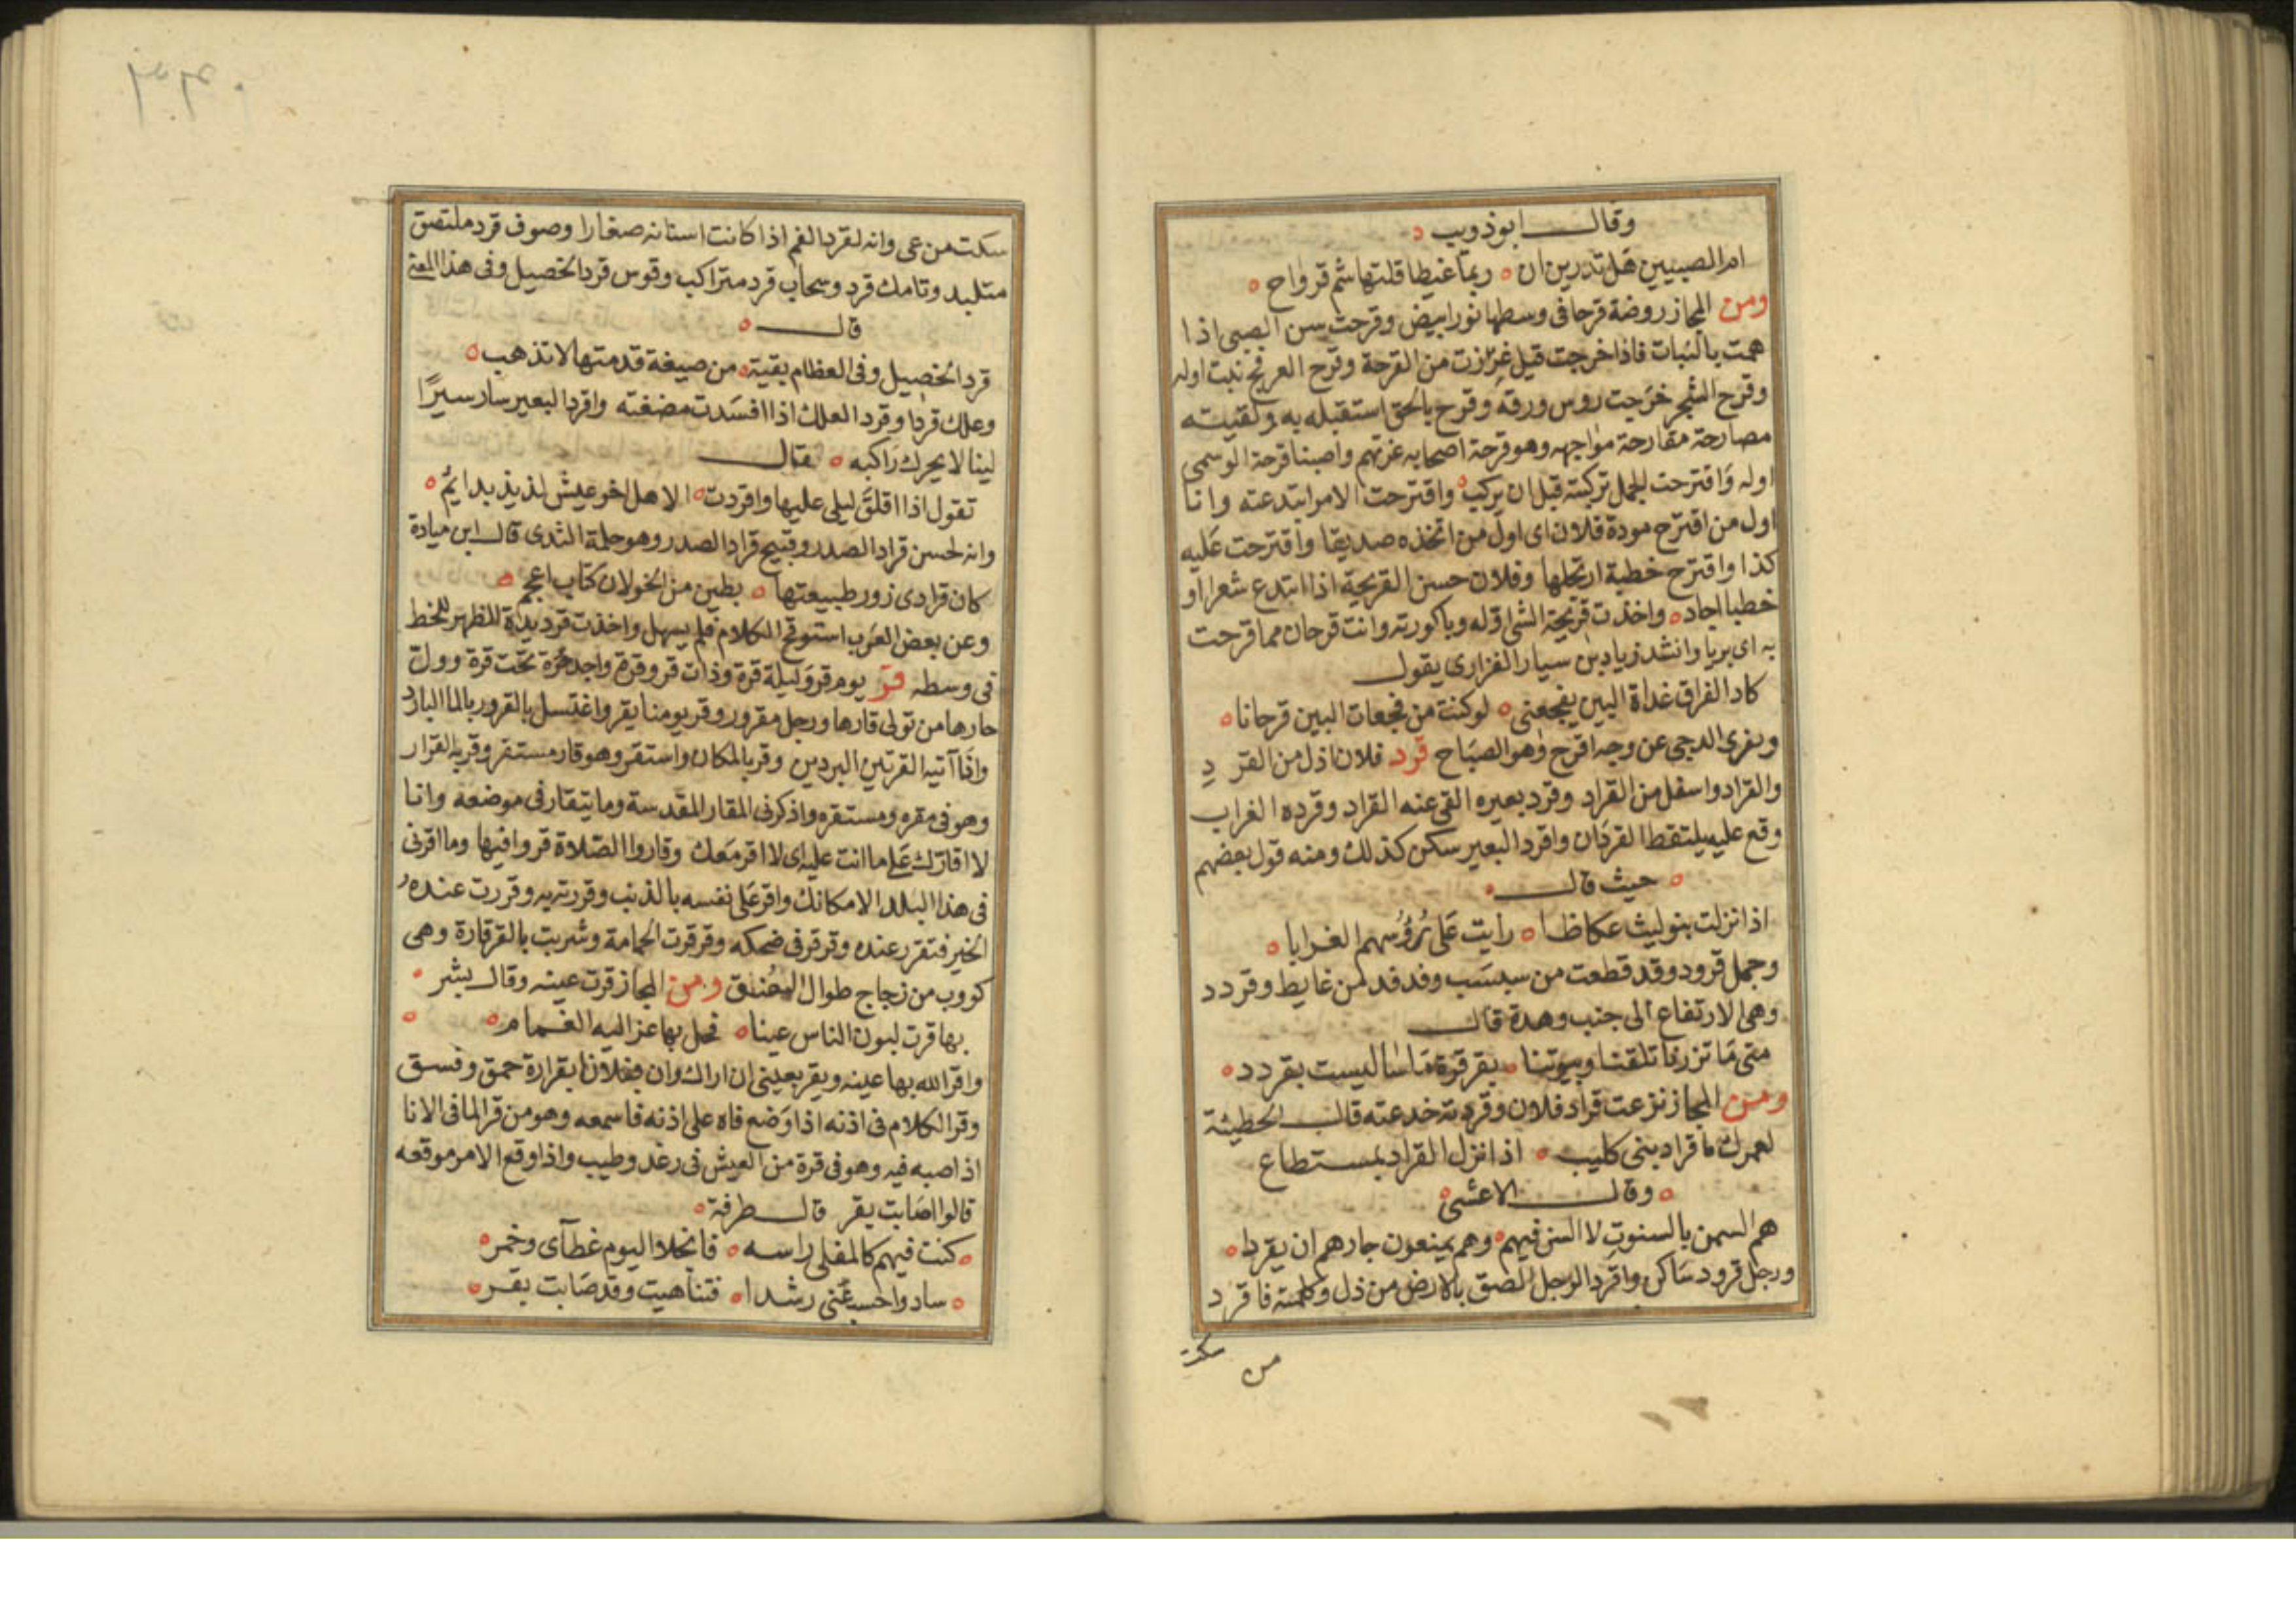 وقال ابوذويب
ام الصبيين هل تدرين ان ربما غيطا قلتها شم قرواح
ومن المجاز روضة قرحا فى وسطها نور ابيض وقرحت سن الصبى اذا
همت بالنبات فاذا خرجت قيل غرزت من القرحة وقرح العرفج نبت اوله
وقرح الشجر خرجت روس ورقه وقرح بالحق استقبله به ولقيته
مصارحة مقارحة مواجهه وهو قرحة اصحابه غرتهم واصبنا قرحة الوسمى
اوله واقترحت الجمل تركبته قبل ان يركب واقترحت الامر ابتدعته وانا
اول من اقترح مودة فلان اى اول من اتخذه صديقا واقترحت عليه
كذا واقترح خطبة ارتجلها وفلان حسن القريحة اذا ابتدع شعرا او
خطبا اجاد واخذت قريحة الشى اوله وباكورته وانت قرحان مما قرحت
به اى بريا وانشد زياد بن سيار الفزارى يقول
كاد الفراق غداة البين يفجعنى لو كنت من فجعات البين قرحانا
وبفرى الدجى عن وجه اقرح وهو الصباح قرد فلان اذل من القرد
والقراد واسفل من القراد وقرد بعيره القى عنه القراد وقرده الغراب
وقع عليه يلتقط القردان واقرد البعير سكن كذلك ومنه قول بعضهم
حيث قال
اذا نزلت بنو ليث عكاظا رايت على رؤسهم الغرابا
وجمل قرود وقد قطعت من سبسب وفدفد من غايط وقردد
وهى الارتفاع الى جنب وهدة قال
متى ما تزرنا تلقنا وبيوتنا بقرقرة ليست بقردد
ومن المجاز نزعت قراد فلان وقردته خدعته قال الحطيئة
لعمرك ما قراد بنى كليب اذا نزل القراد بمستطاع
وقال الاعشى
هم السمن بالسنوت لا السن فيهم وهم يمنعون جارهم ان يقردا
ورجل قرود ساكن واقرد الرجل الصق بالارض من ذل وكلمته فاقرد
سكت من
سكت من عى وانه لقرد الفم اذا كانت اسنانه صغارا وصوف قرد ملتصق
متلبد وتامك قرد وسحاب قرد متراكب وقوس قرد الخصيل وفى هذا المعنى
قال
قرد الخصيل وفى العظام بقية من صيغة قدمتها لا تذهب
وعلك قرد وقرد العلك اذا افسدت مضغته واقرد البعير سار سيرا
لينا لا يحرك راكبه فقال
تقول اذا اقلق ليلى عليها واقردت الا هل اخو عيش لذيذ بدايم
وانه لحسن قراد الصدر وقبيح قراد الصدر وهو حلمة الثدى قال ابن ميادة
كان قرادى زور طبيعتها بطين من الخولان كتاب اعجم
وعن بعض العرب استوقح الكلام فلم يسهل واخذت قرديدة الظهر للخط
فى وسطه قر يوم قر وليلة قرة وذات قر وقرة واجد حرة تحت قرة وول
حارها من تولى قارها ورجل مقرور وقر يومنا يقر واغتسل بالقرور بالما البارد
وانا آتيه القرتين البردين وقر بالمكان واستقر وهو قار مستقر وقر به القرار
وهو فى مقره ومستقره واذكرنى المقار المقدسة وما يتقار فى موضعه وانا
لا اقارك على ما انت عليه اى لا اقر معك وقاروا الصلاة قروا فيها وما اقرنى
فى هذا البلد الا مكانك واقر على نفسه بالذنب وقررته به وقررت عنده
الخير فتقرر عنده وقرقر فى ضحكه وقرقرت الحمامة وشربت بالقرقارة وهى
كووب من زجاج طوال العنق ومن المجاز قرت عينه وقال بشر
بها قرت لبون الناس عينا فحل بها عزاليه الغمام
واقر الله بها عينه ويقر بعينى ان اراك وان فلانا بقرارة حمق وفسق
وقر الكلام فى اذنه اذا وضع فاه على اذنه فاسمعه وهو من قر الما فى الانا
اذا صبه فيه وهو فى قرة من العيش فى رغد وطيب واذا وقع الامر موقعه
قالوا اصابت بقر قال طرفة
كنت فيهم كالمغلى راسه فانجلا اليوم غطآى وخمر
سادوا احسب غنى رشدا فتناهيت وقد صابت بقر